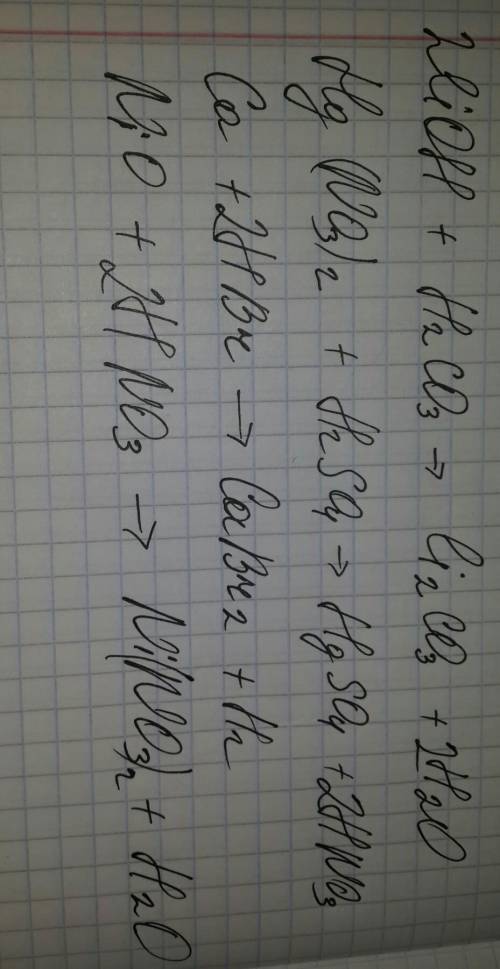 2LiOH + H2CO3 → Li2CO3 + 2H2O
Hg(NO3)2 + H2SO4 → HgSO4 + 2HNO3
Ca + 2HBr → CaBr2 + H2
NiO + 2HNO3 → Ni(NO3)2 + H2O